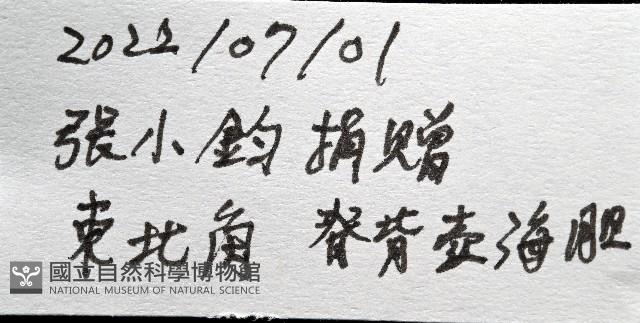 2022/07/01
張小鈞捐贈
東北角 脊背壺海胆
國立自然科學博物館
NATIONAL MUSEUM OF NATURAL SCIENCE